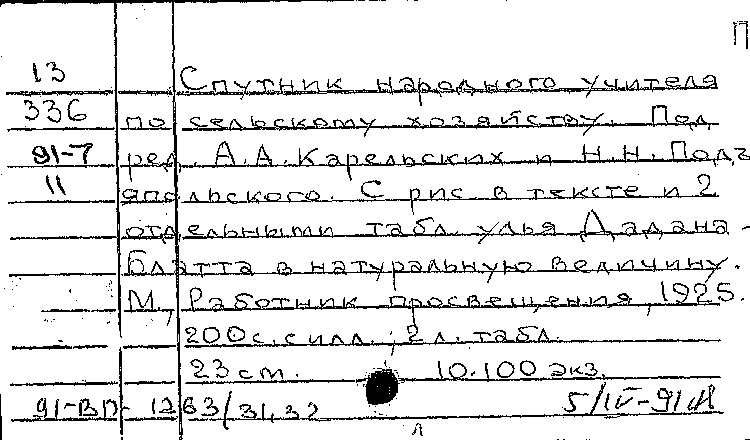 П
13 Спутник народного учителя
336 по сельскому хозяйству. Под
91-7 ред. А.А.Карельских и Н.Н.Подъ
11 япольского. С рис в тексте и 2
отдельными табл. улья Дадана-
Блатта в натуральную величину.
М., Работник просвещения, 1925.
200с. с илл., 2 л. табл.
23 см. 10.100 экз.
91-ВП-1263/31,32 5/IV-91